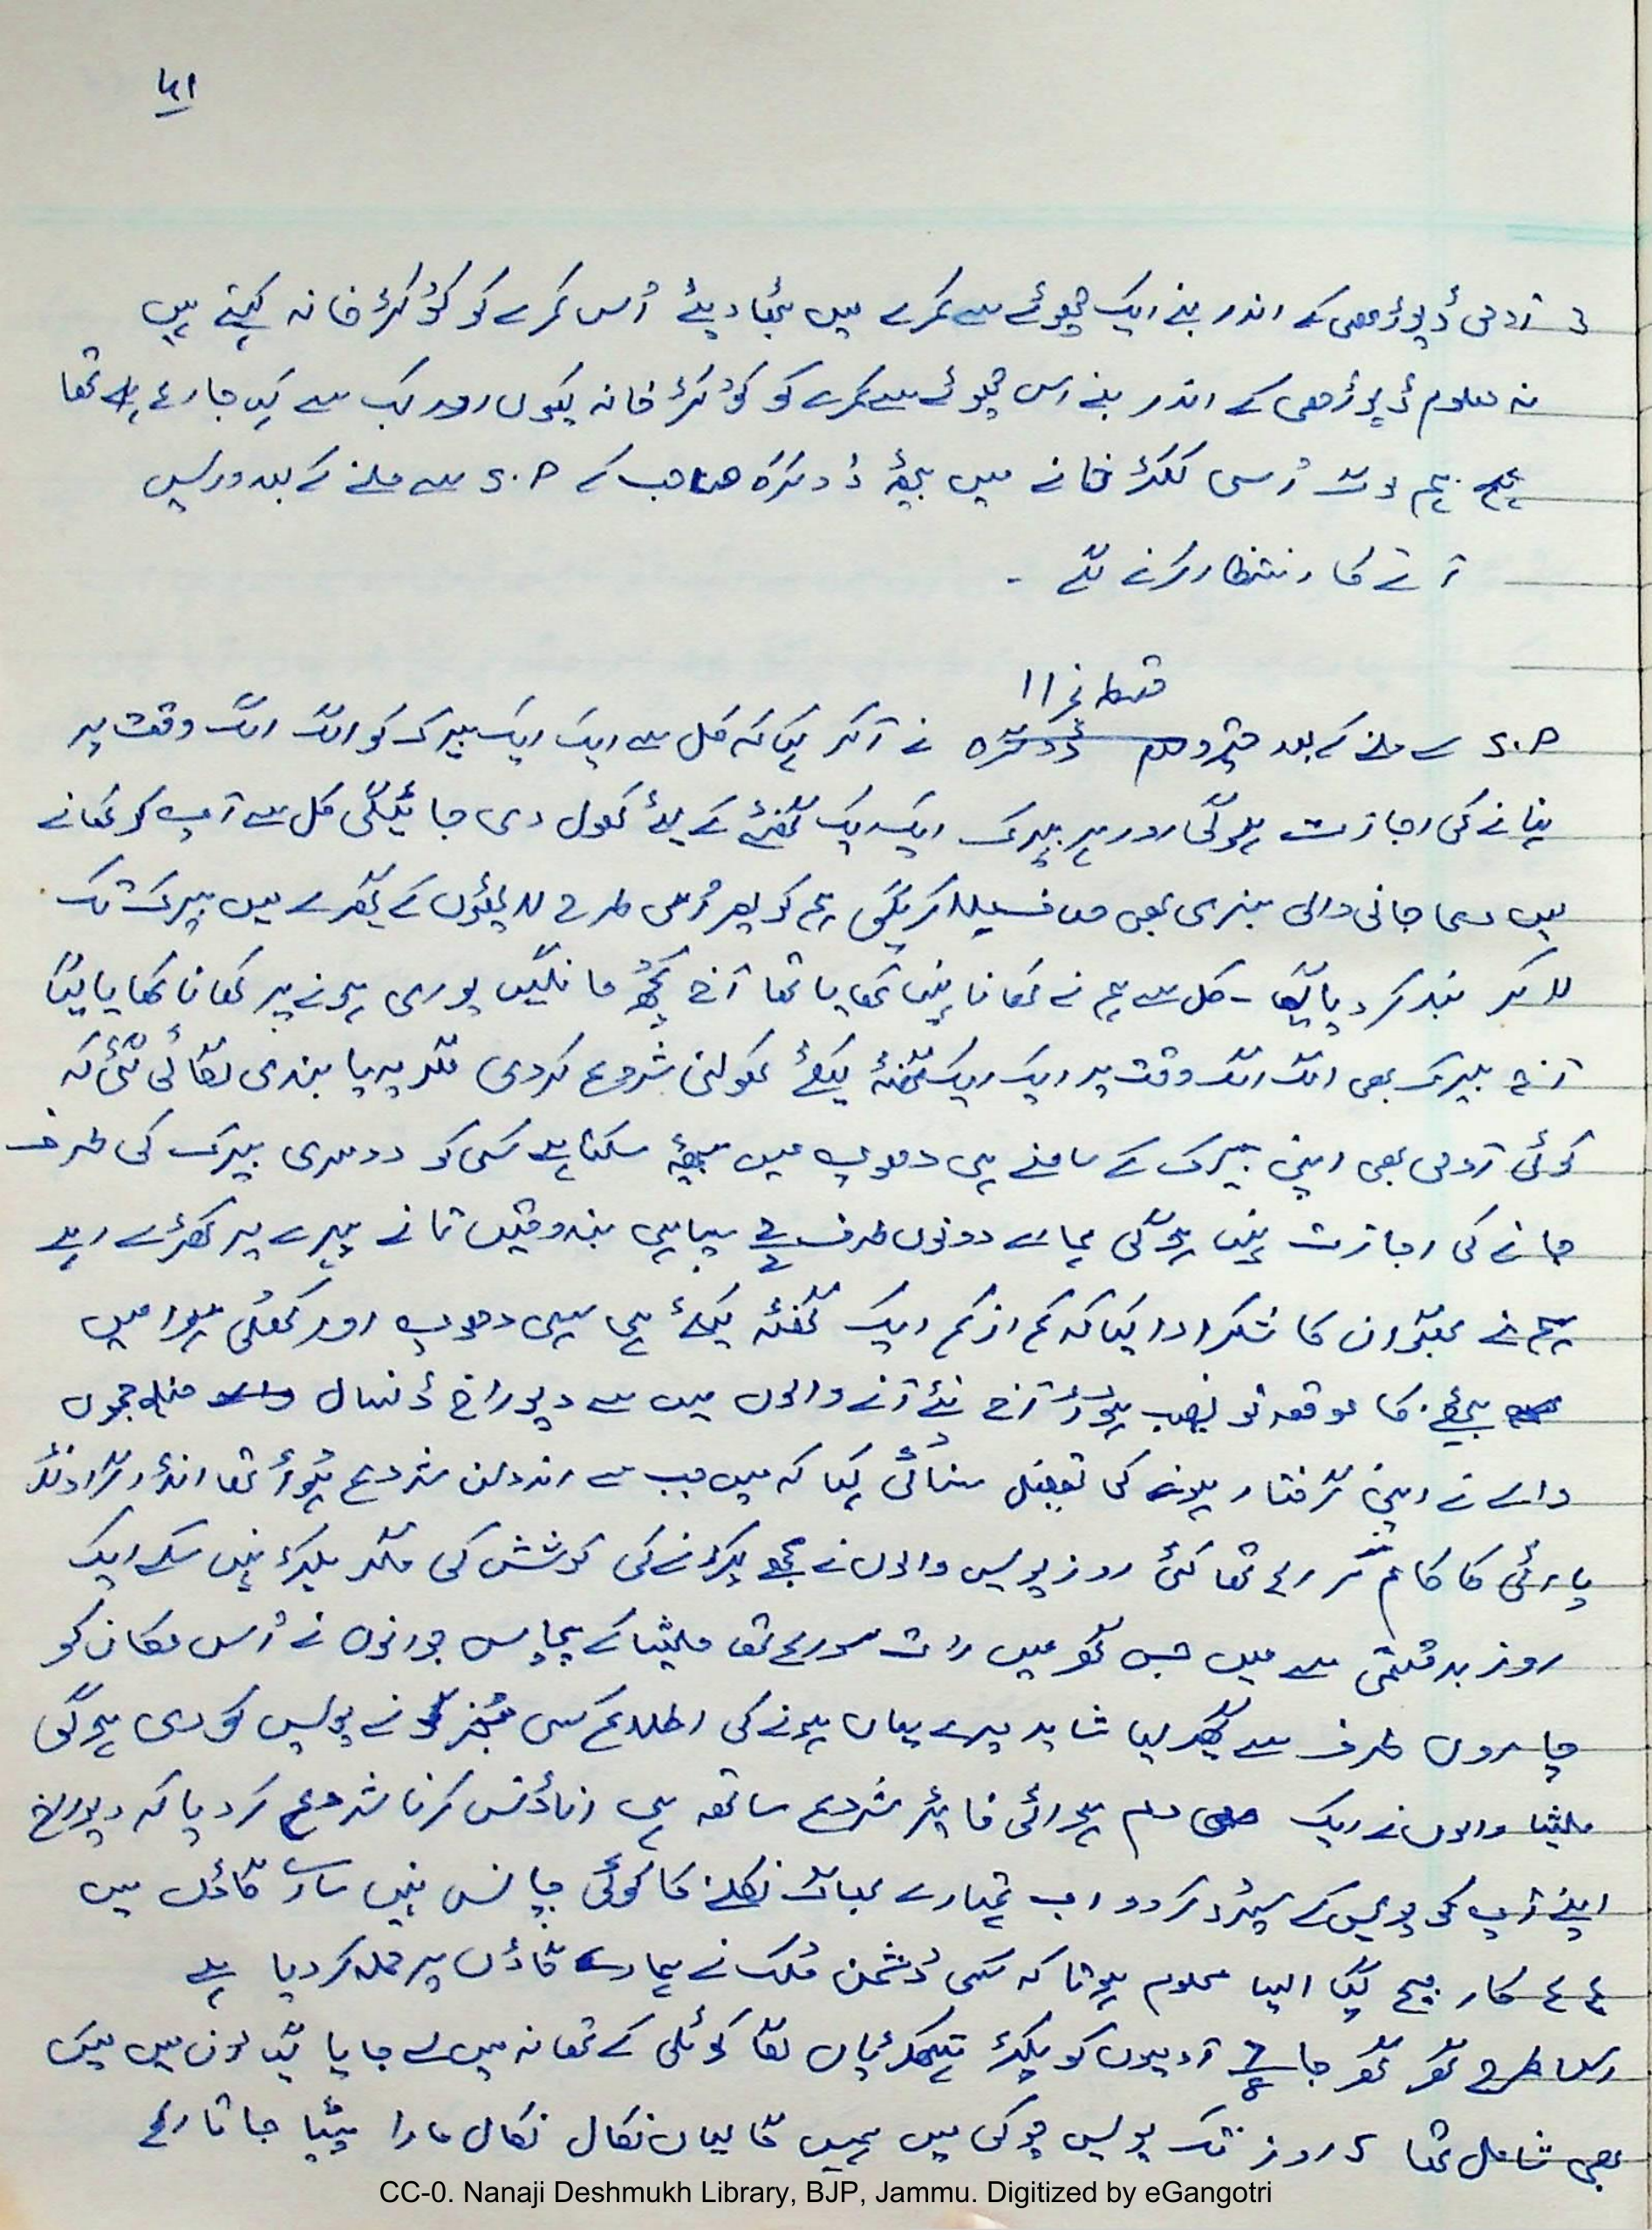 ۱۴۱
آدمی ڈیوڑھی کے اندر بنے ایک چھوٹے سے کمرے میں بٹھا دیئے اُس کمرے کو ککڑ خانہ کہتے ہیں
نہ معلوم ڈیوڑھی کے اندر بنے اس چھوٹے سے کمرے کو ککڑ خانہ کیوں اور کب سے کہا جا رہا تھا
ہم لوگ اُسی ککڑ خانے میں بیٹھ ڈوگرہ صاحب کے D.C سے ملنے کے بعد واپس
آنے کا انتظار کرنے لگے -
قسط نمبر ۱۱
D.C سے ملنے کے بعد نے آکر کہا کہ کل سے ایک ایک بیرک کو الگ الگ وقت پر
نہانے کی اجازت ہوگی اور ہر بیرک ایک ایک گھنٹے کے لئے کھول دی جائیگی کل سے آپ کو کھانے
میں دی جانی والی سبزی بھی کریگی ہم کو پھر اُسی طرح لاٹھیوں کے پہرے میں بیرک تک
لا کر بند کر دیا گیا - کل سے ہم نے کھانا نہیں کھایا تھا آج کچھ مانگیں پوری ہونے پر کھانا کھایا گیا
آج بیرک بھی الگ الگ وقت پر ایک ایک گھنٹہ کیلئے کھولنی شروع کر دی مگر یہ پابندی لگائی گئی کہ
کوئی آدمی بھی اپنی بیرک کے سامنے ہی دھوپ میں بیٹھ سکتا ہے کسی کو دوسری بیرک کی طرف
جانے کی اجازت نہیں ہوگی ہمارے دونوں طرف سپاہی بندوقیں تانے پہرے پر کھڑے رہے
ہم نے بھگوان کا شکر ادا کیا کہ کم از کم ایک گھنٹہ کیلئے ہی سہی دھوپ اور کھلی ہوا میں
بیٹھنے کا موقعہ تو نصیب ہوا آج نئے آنے والوں میں سے دیوراج ڈنسال ضلع جموں
والے نے اپنی گرفتار ہونے کی تفصیل سنائی کہا کہ میں جب سے اندولن شروع ہوا تھا انڈر گراونڈ
پارٹی کا کام کر رہا تھا کئی روز پولیس والوں نے مجھے پکڑنے کی کوشش کی مگر پکڑ نہیں سکے ایک
روز بدقسمتی سے میں جس گھر میں رات سو رہا تھا ملیشیا کے پچاس جوانوں نے اُس مکان کو
چاروں طرف سے گھیر لیا شاید میرے یہاں ہونے کی اطلاع کسی مخبر نے پولیس کو دی ہوگی
ملیشیا والوں نے ایک دم ہوائی فائر شروع ساتھ ہی اناؤنس کرنا شروع کر دیا کہ دیوراج
اپنے آپ کو پولیس کے سپرد کر دو اب تمہارے بھاگ نکلنے کا کوئی چانس نہیں سارے گاؤں میں
مچ گیا ایسا معلوم ہوتا کہ کسی دُشمن مُلک نے ہمارے گاؤں پر حملہ کر دیا ہے
اس طرح گھر گھر جا کے آدمیوں کو پکڑ ہتھکڑیاں لگا کوٹلی کے تھانہ میں لے جایا گیا ان میں میں
بھی شامل تھا ۵ روز تک پولیس چوکی میں ہمیں گالیاں نکال نکال مارا پیٹا جاتا رہا
CC-0. Nanaji Deshmukh Library, BJP, Jammu. Digitized by eGangotri